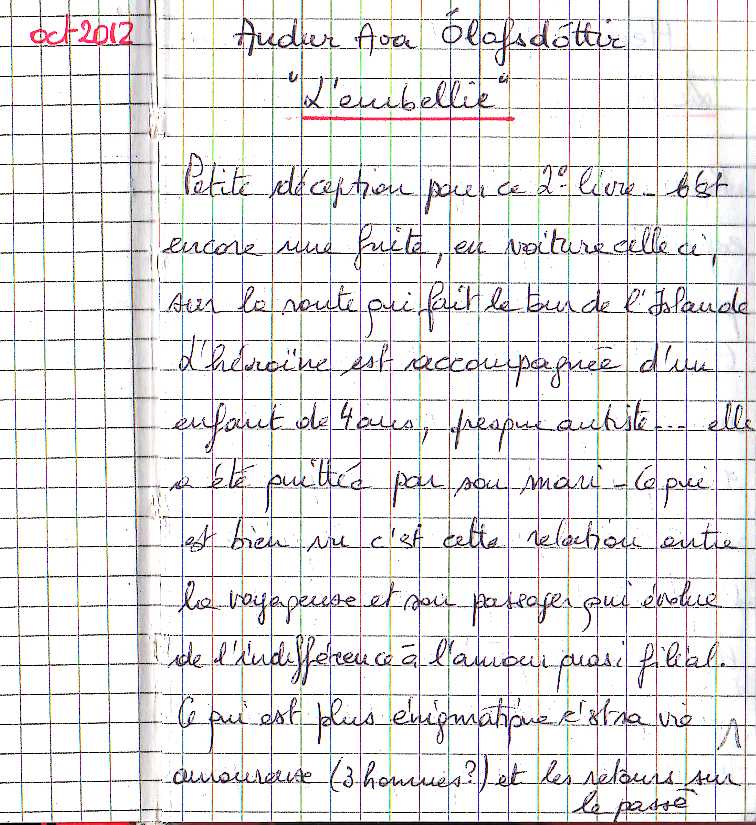 oct-2012
Audur Ava Ólafsdóttir
"L'embellie"
Petite déception pour ce 2° livre - C'est
encore une fuite, en voiture celle ci,
sur la route qui fait le tour de l'Islande
L'héroïne est accompagnée d'un
enfant de 4 ans, presque autiste... elle
a été quittée par son mari - Ce qui
est bien vu c'est cette relation entre
la voyageuse et son passager qui évolue
de l'indifférence à l'amour quasi filial.
Ce qui est plus énigmatique c'est sa vie
amoureuse (3 hommes?) et les retours sur
le passé